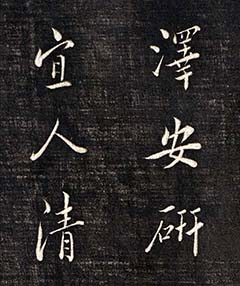 澤安研
宜人清